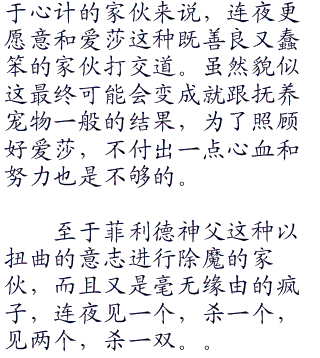 于心计的家伙来说，连夜更
愿意和爱莎这种既善良又蠢
笨的家伙打交道。虽然貌似
这最终可能会变成就跟抚养
宠物一般的结果，为了照顾
好爱莎，不付出一点心血和
努力也是不够的。
至于菲利德神父这种以
扭曲的意志进行除魔的家
伙，而且又是毫无缘由的疯
子，连夜见一个，杀一个，
见两个，杀一双。。